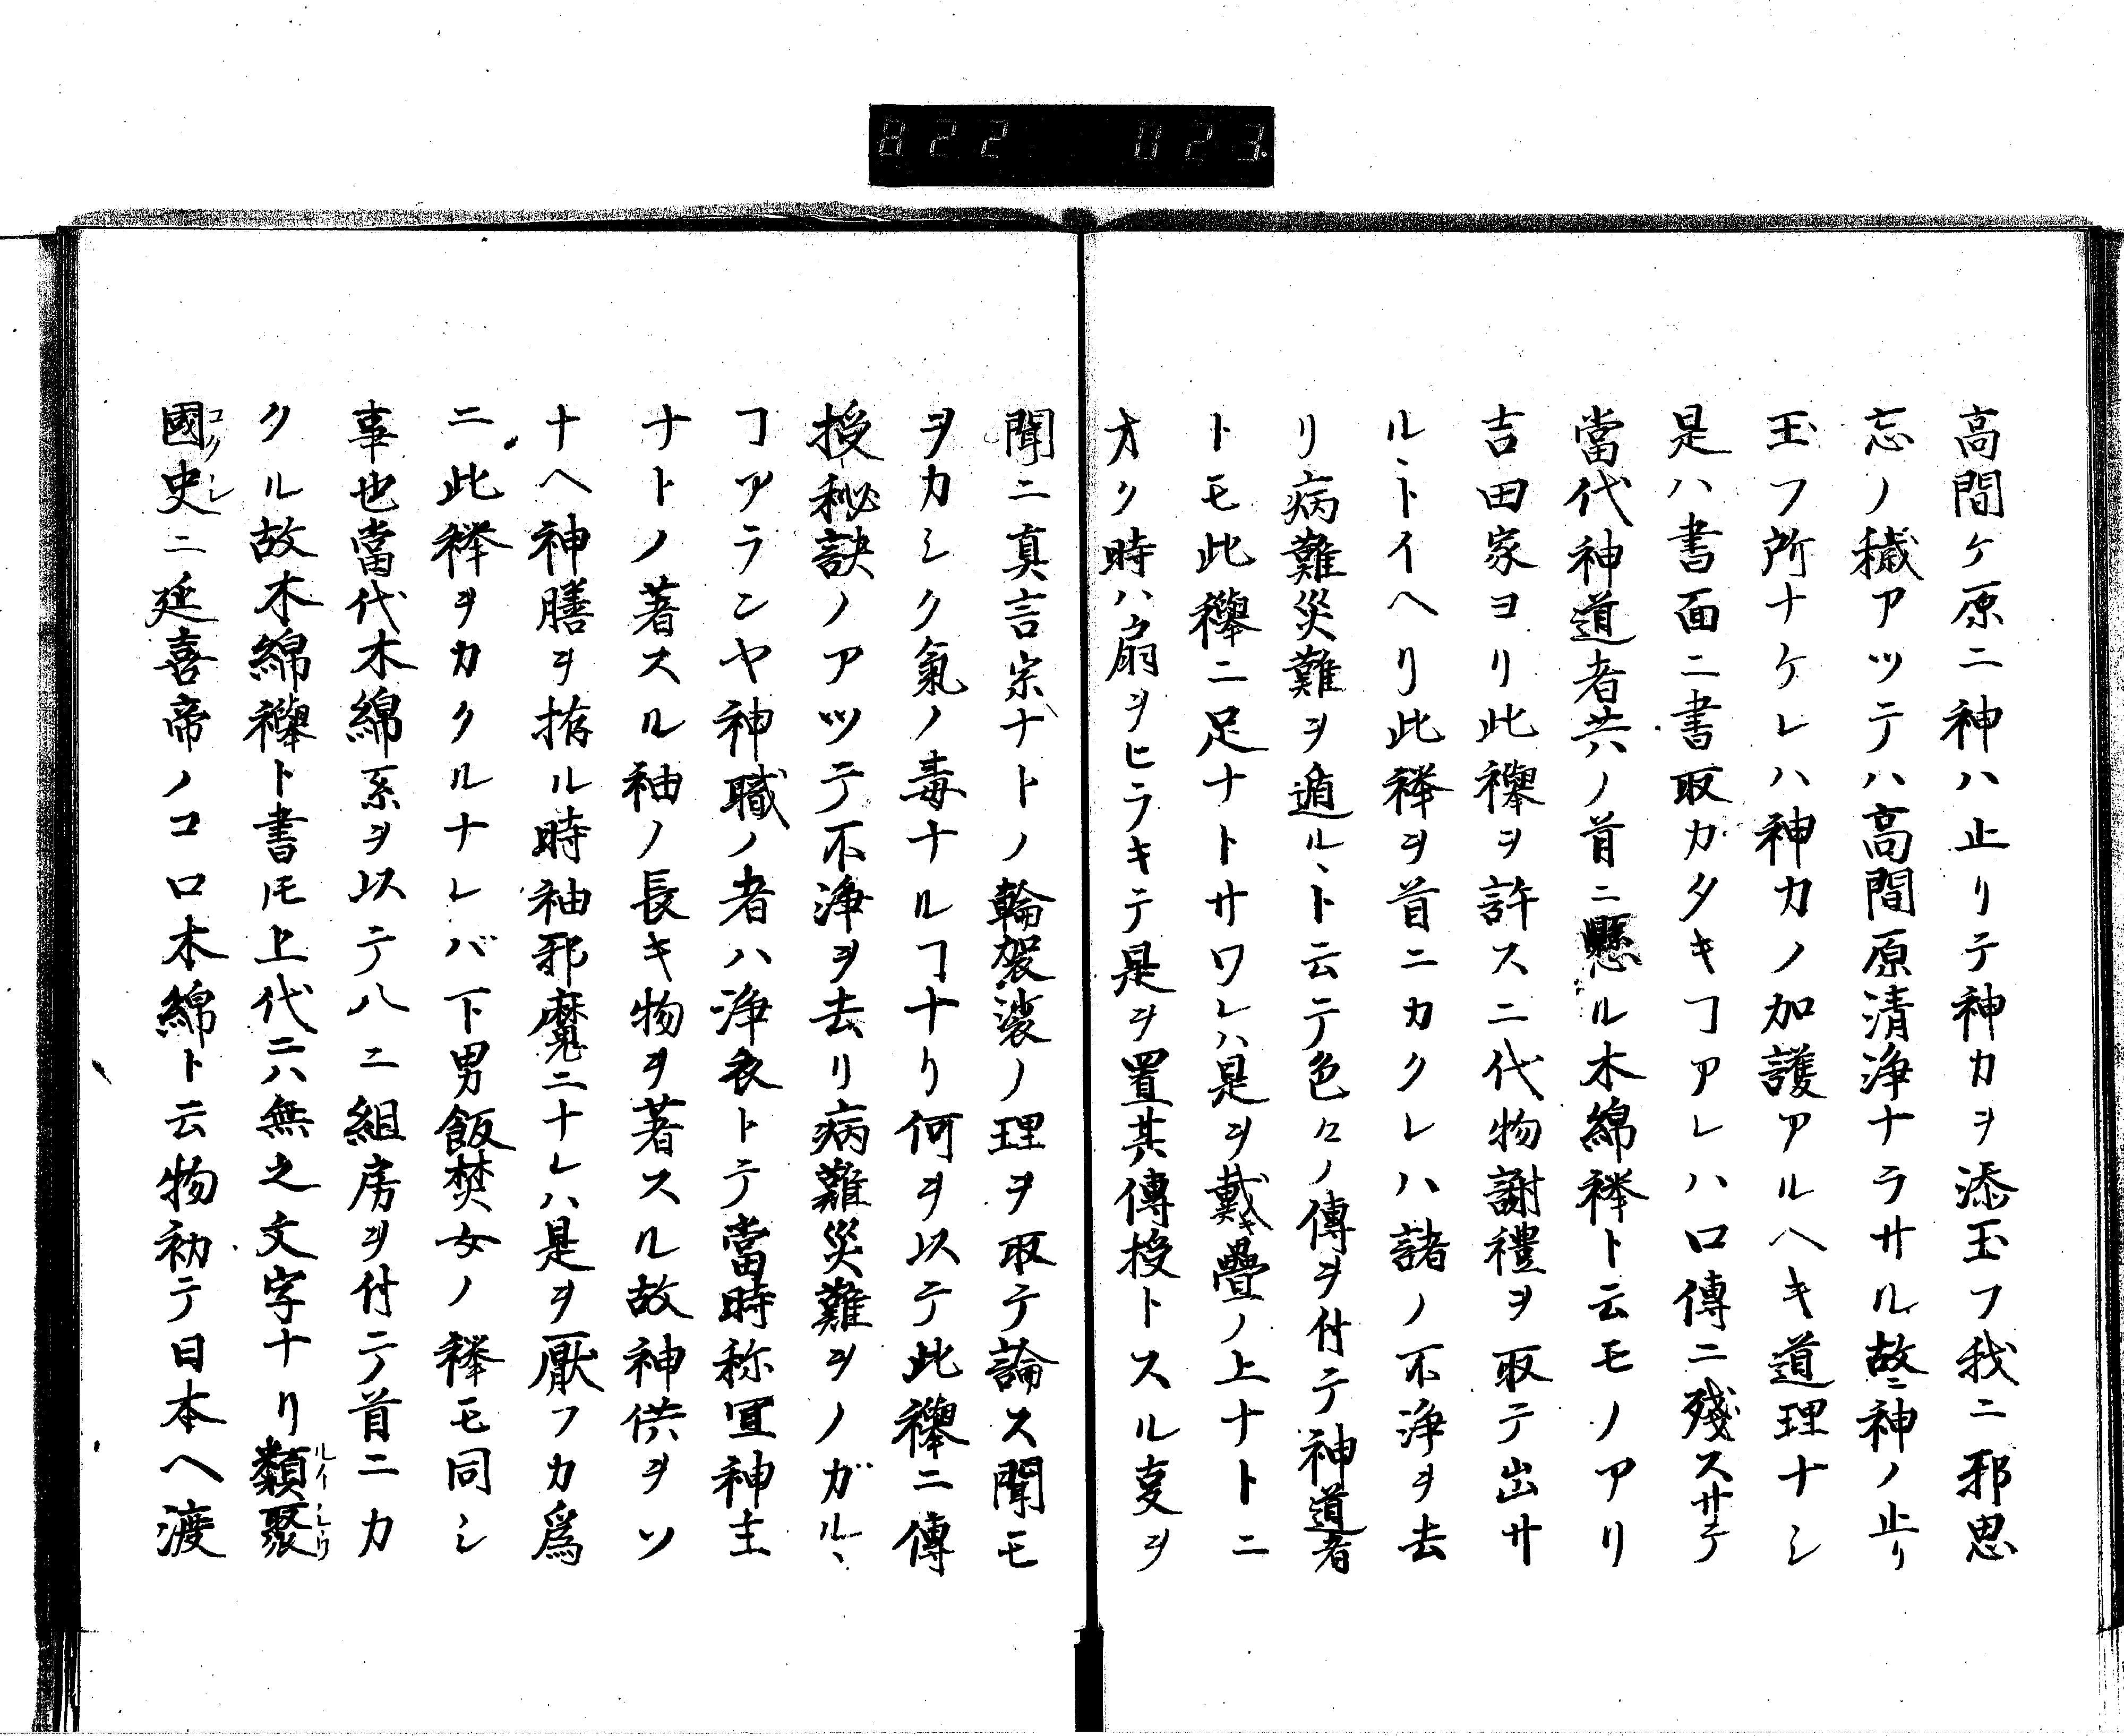 822 023.
高間ケ原ニ神ハ止リテ神力ヲ添玉フ我ニ邪思
忘ノ穢アツテハ高間原清浄ナラサル故ニ神ノ止リ
玉フ所ナケレハ神力ノ加護アルヘキ道理ナシ
是ハ書面ニ書取カタキヿアレハ口傳ニ殘スサテ
當代神道者共ノ首ニ懸ル木綿襷ト云モノアリ
吉田家ヨリ此襷ヲ許スニ代物謝禮ヲ取テ出サ
ルヽトイヘリ此襷ヲ首ニカクレハ諸ノ不浄ヲ去
リ病難災難ヲ遁ルヽト云テ色々ノ傳ヲ付テ神道者
トモ此襷ニ足ナトサワレハ是ヲ戴キ疊ノ上ナトニ
オク時ハ扇ヲヒラキテ是ヲ置其傳授トスル叓ヲ
聞ニ真言宗ナトノ輪袈裟ノ理ヲ取テ論ス聞モ
ヲカシク氣ノ毒ナルヿナリ何ヲ以テ此襷ニ傳
授秘訣ノアツテ不浄ヲ去リ病難災難ヲノガルヽ
ヿアランヤ神職ノ者ハ浄衣トテ當時称宜神主
ナトノ著スル袖ノ長キ物ヲ著スル故神供ヲソ
ナヘ神膳ヲ拵ル時袖邪魔ニナレハ是ヲ厭フカ爲
ニ此襷ヲカクルナレバ下男飯焚女ノ襷モ同シ
事也當代木綿糸ヲ以テ八ニ組房ヲ付テ首ニカ
クル故木綿襷ト書𪜈上代ニハ無之文字ナリ類聚ルイシウ
國史コクシニ延喜帝ノコロ木綿ト云物初テ日本ヘ渡